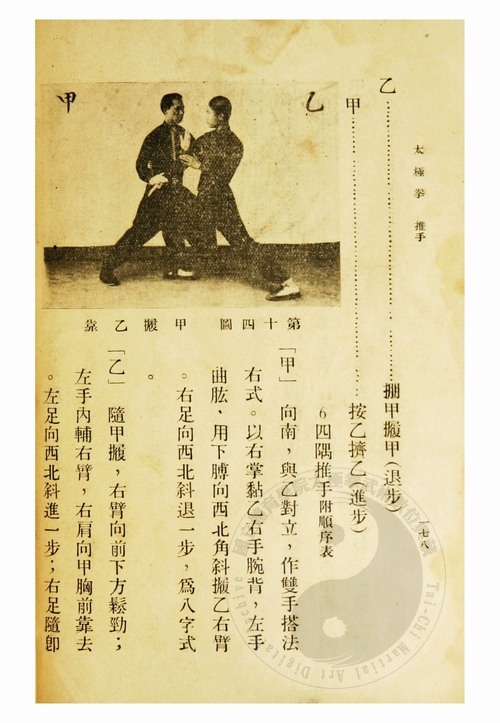 太極拳 推手
一七八
乙……掤甲擠甲(退步)
甲……按乙擠乙(進步)
6 四隅推手 附順序表
「甲」 向南，與乙對立，作雙手搭法
右式。以右掌黏乙右手腕背，左手
曲肱、用下膊向西北角斜搌乙右臂
。右足向西北斜退一步，為八字式
。
「乙」 隨甲搌，右臂向前下方鬆勁；
左手內輔右臂，右肩向甲胸前靠去
。左足向西北斜進一步；右足隨卽
乙
甲
第十四圖 甲搌乙靠
Tai-Chi Martial Art Digital Archive